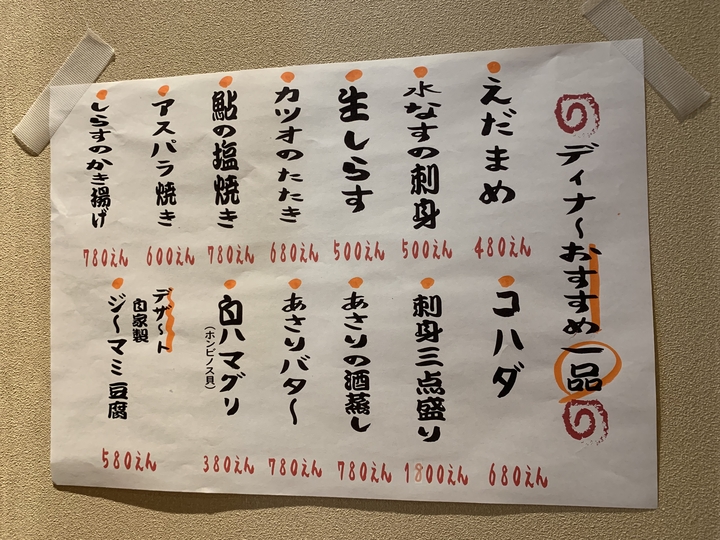 ディナ～おすすめ一品
えだまめ
480えん
水なすの刺身
500えん
生しらす
500えん
カツオのたたき
680えん
鮎の塩焼き
780えん
アスパラ焼き
600えん
しらすのかき揚げ
780えん
コハダ
680えん
刺身三点盛り
1800えん
あさりの酒蒸し
780えん
あさりバタ～
780えん
白ハマグリ
(ホンビノス貝)
380えん
デザ～ト
自家製
ジ～マミ豆腐
580えん